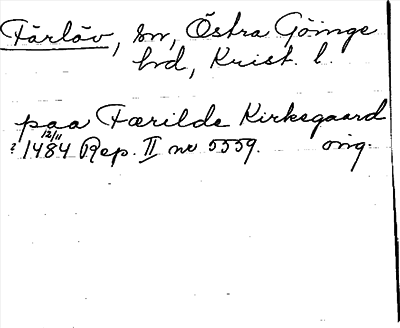 Färlöv, sn, Östra Göinge
hd, Krist. l.
paa Færilde Kirkegaard
12/11
? 1484 Rep. II nr 5559. orig.